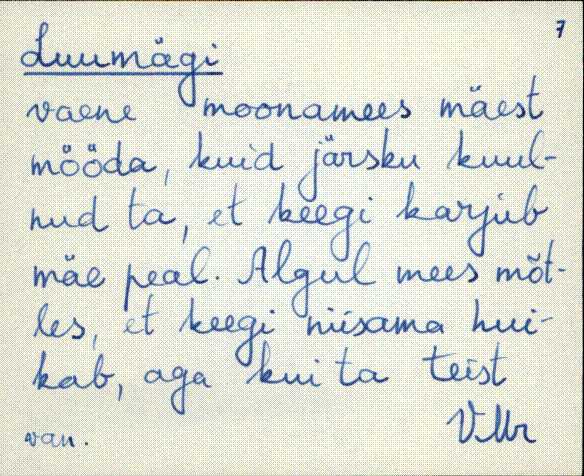 7
Luumägi
vaene moonamees mäest
mööda, kuid järsku kuul-
nud ta, et keegi karjub
mäe peal. Algul mees mõt-
les, et keegi niisama hui-
kab, aga kui ta teist
VMr
van.